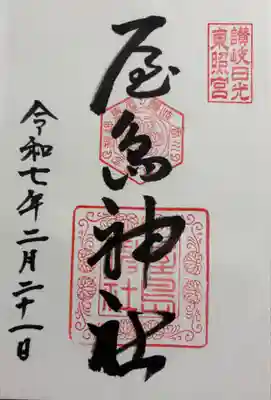 讃岐日光
東照宮
屋島神社
令和七年二月二十一日